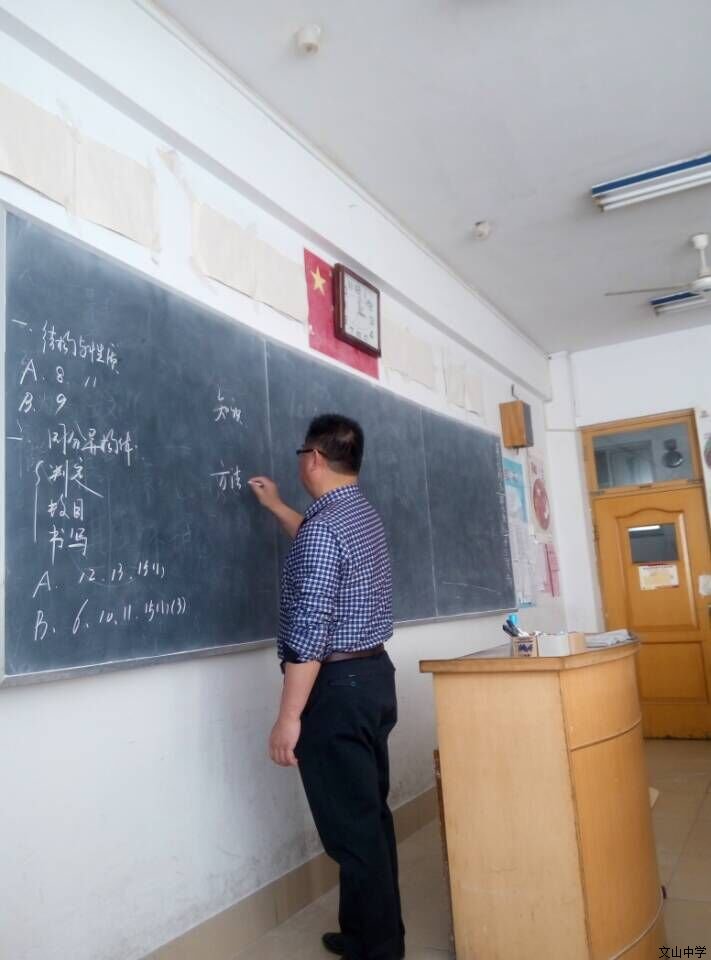 一、结构与性质
A. 8. 11
B. 9
二、同分异构体
判定
数目
书写
A. 12. 13. 15(1)
B. 6. 10. 11. 15(1)(3)
知识
方法
文山中学